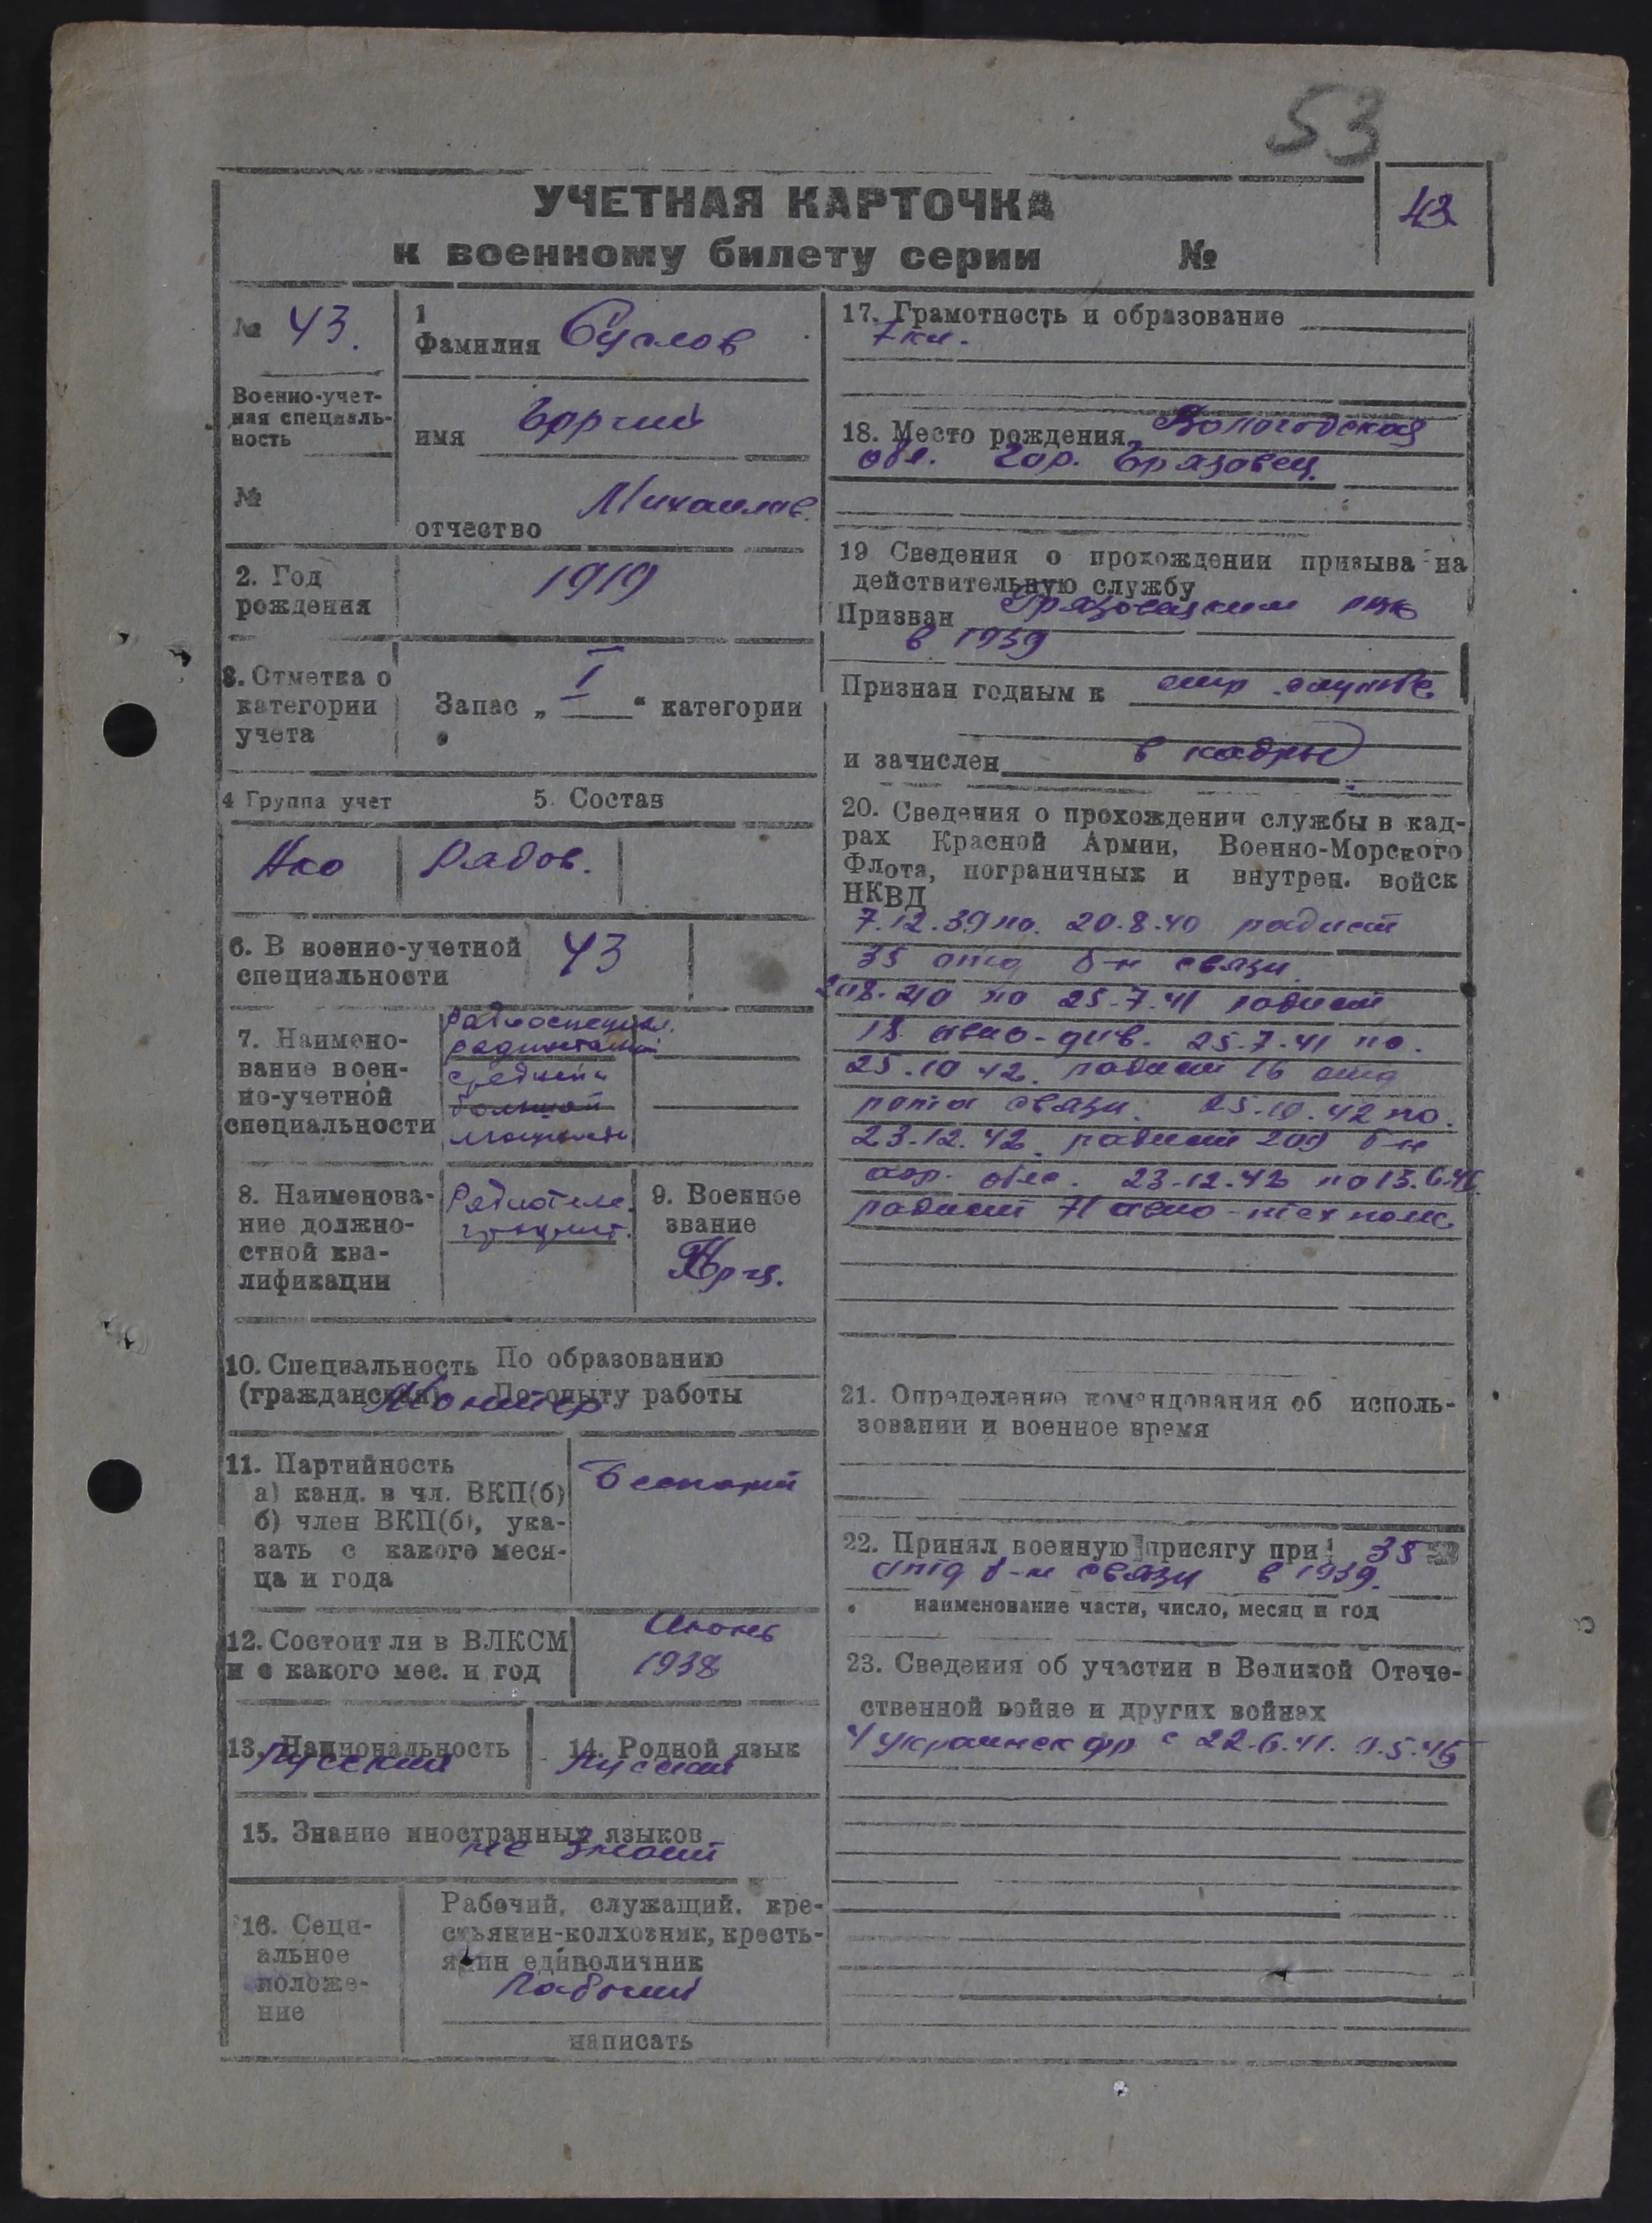 53
УЧЕТНАЯ КАРТОЧКА
к военному билету серии №
43
№ 43.
1
Фамилия Суслов
Военно-учет-
ная специаль-
ность
имя
№
отчество Михаилов.
2. Год
рождения
1919
3. Отметка о
категории
учета
Запас „ I “ категории
4 Группа учет
5. Состав
Рядов.
6. В военно-учетной
специальности
43
7. Наимено-
вание воен-
но-учетной
специальности
Радиоспециал.
радиостанций
средней и
большой
мощности
8. Наименова-
ние должно-
стной ква-
лификации
Радиотеле
графист.
9. Военное
звание
Кр-ц.
10. Специальность По образованию
(гражданская) По опыту работы
Монтер
11. Партийность
а) канд. в чл. ВКП(б)
б) член ВКП(б), ука-
зать с какого меся-
ца и года
Беспарт
12. Состоит ли в ВЛКСМ
и с какого мес. и год
1938
13. Национальность
Русский
14. Родной язык
Русский
15. Знание иностранных языков
не знает
16. Соци-
альное
положе-
ние
Рабочий, служащий, кре-
стьянин-колхозник, кресть-
янин единоличник
Рабочий
написать
17. Грамотность и образование
7 кл.
18. Место рождения Вологодская
обл. гор. Грязовец
19 Сведения о прохождении призыва на
действительную службу
Призван Грязовецким РВК
в 1939
Признан годным к стр. службе
и зачислен в кадры
20. Сведения о прохождении службы в кад-
рах Красной Армии, Военно-Морского
Флота, пограничных и внутрен. войск
НКВД
7.12.39 по. 20.8.40 радист
35 отд б-н связи
20.8.40 по 25.7.41 радист
18 авио-див. 25.7.41 по.
25.10 42. радист 16 отд
рота связи. 25.10.42 по.
23.12.42. радист 209 б-н
аэр. обс. 23.12.42 по 13.6.46
радист 71 авио-тех полк
21. Определение командования об исполь-
зовании и военное время
22. Принял военную присягу при 35
отд б-н связи в 1939.
наименование части, число, месяц и год
23. Сведения об участии в Великой Отече-
ственной войне и других войнах
4 Украинск фр с 22.6.41. 9.5.45